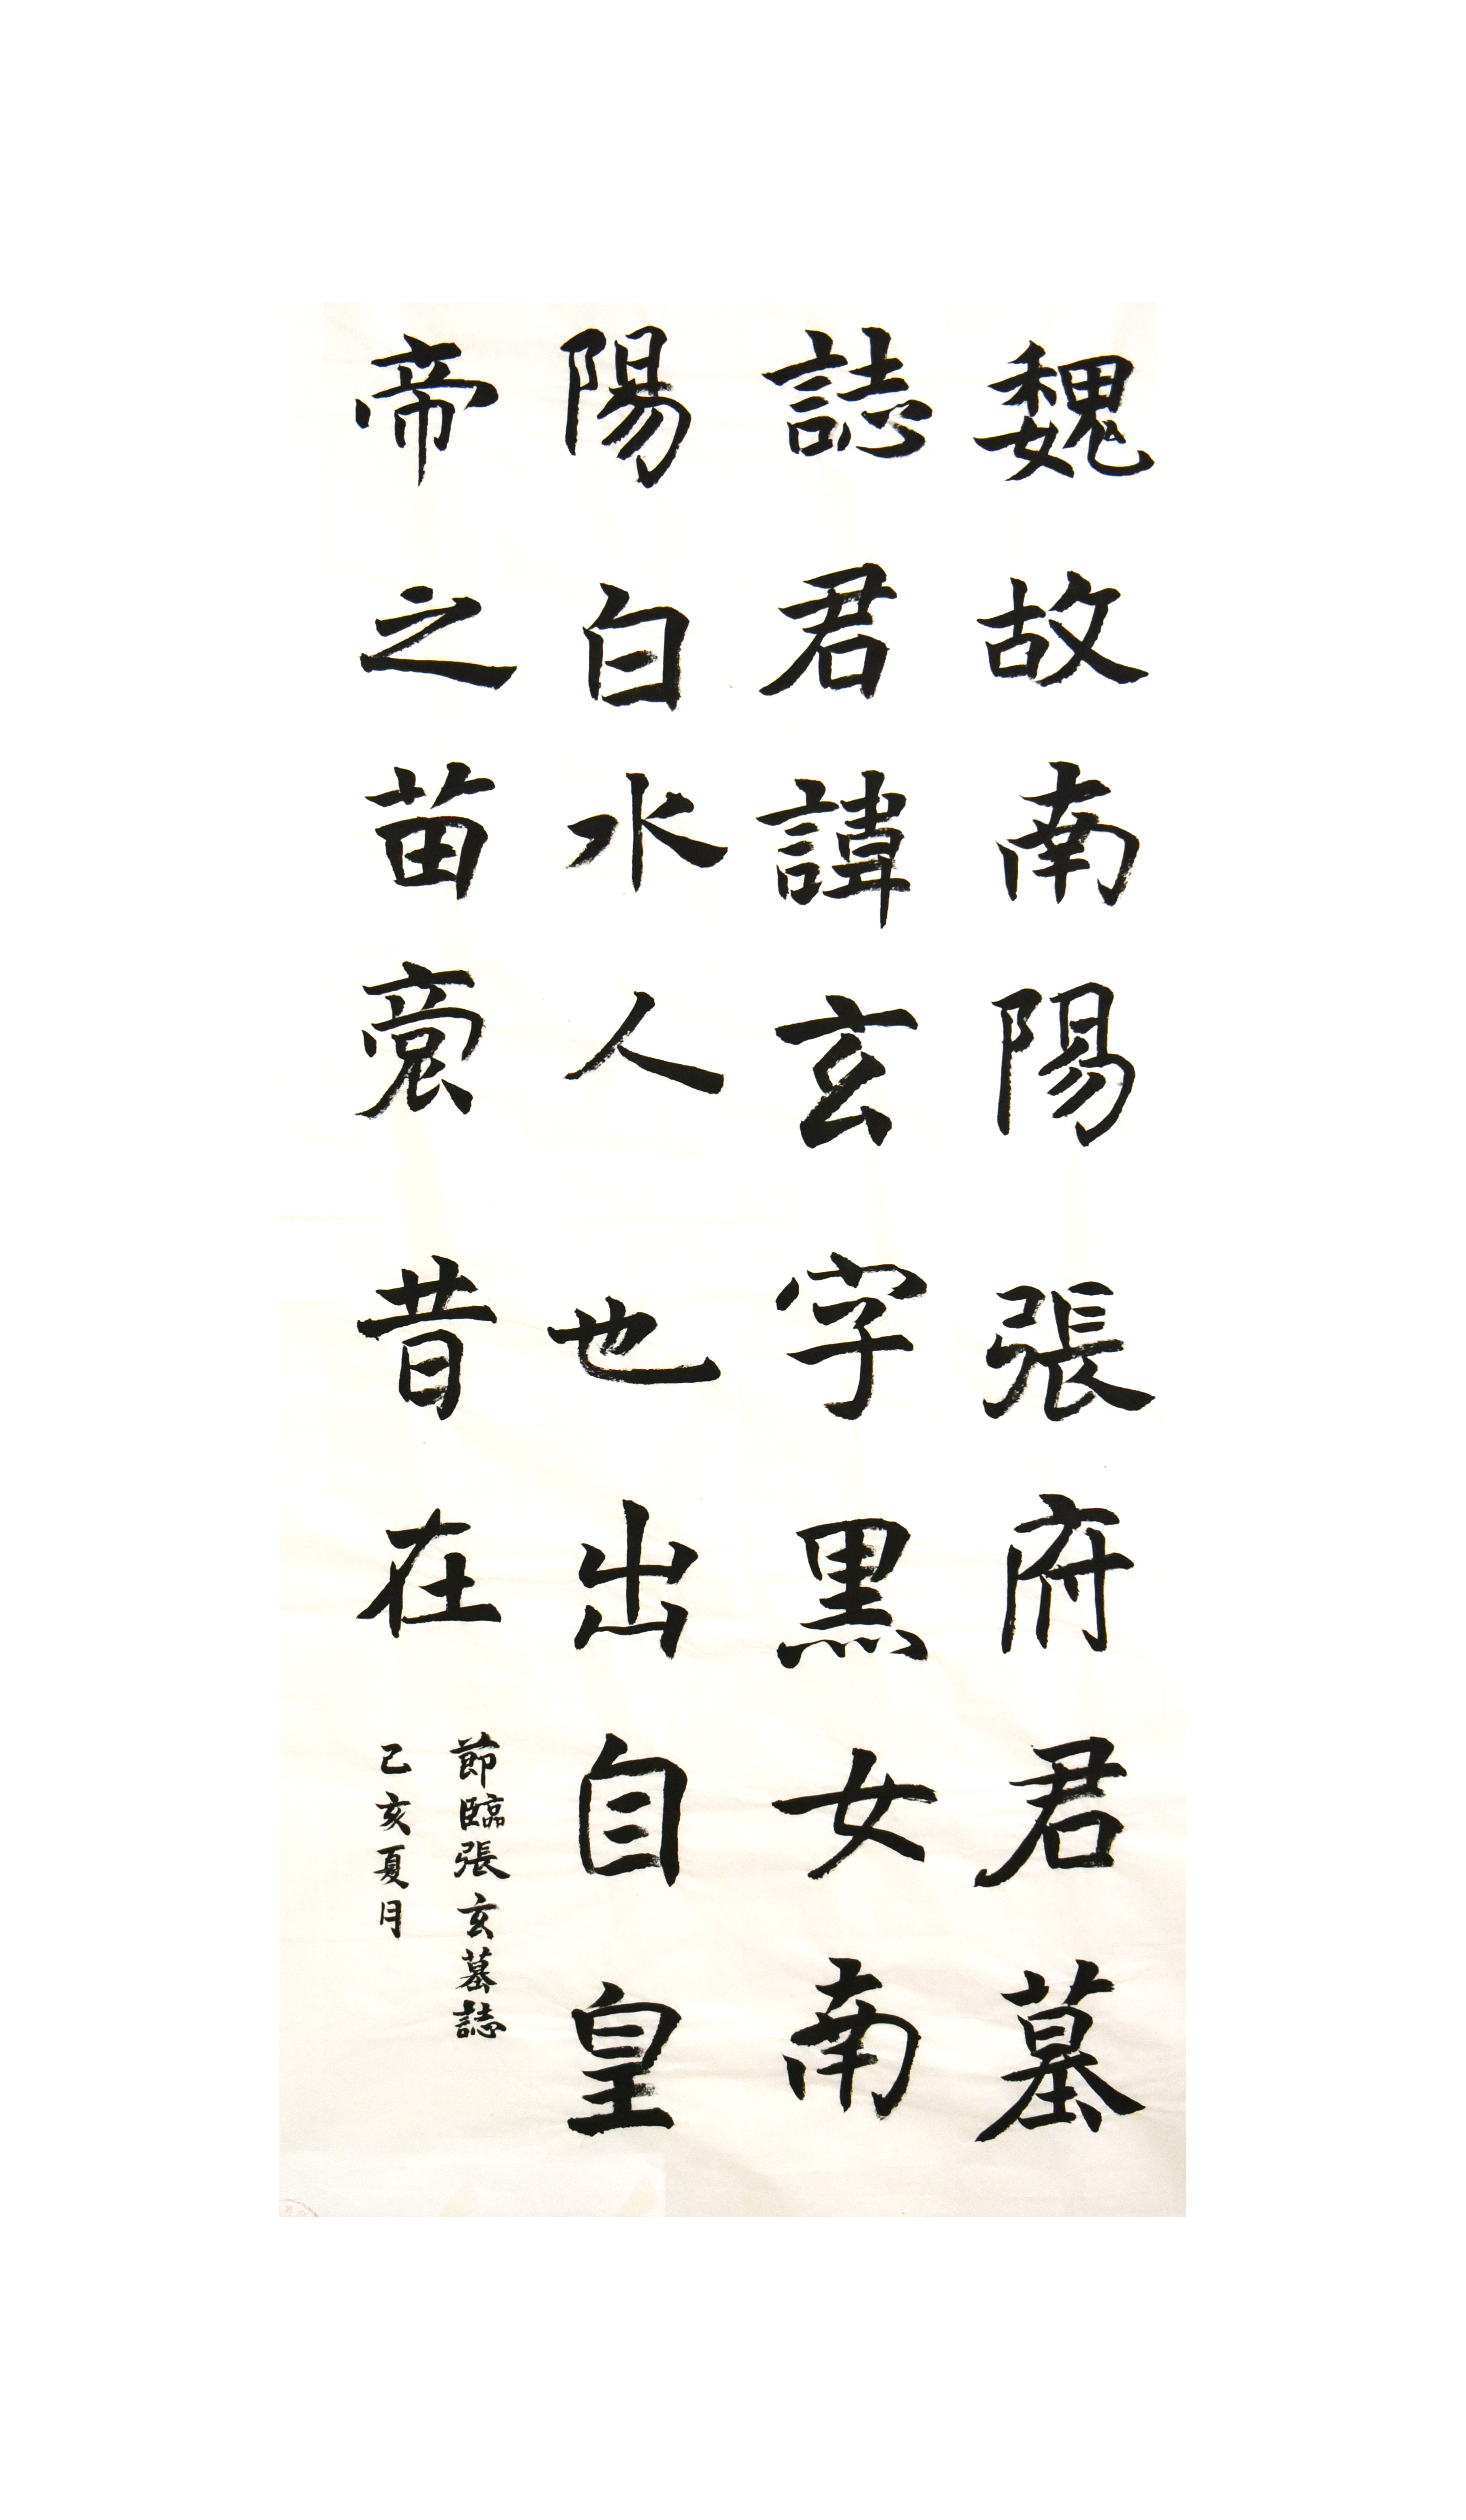 魏故南陽張府君墓
誌君諱玄字黑女南
陽白水人也出自皇
帝之苗裔昔在
節臨張玄墓誌
己亥夏月